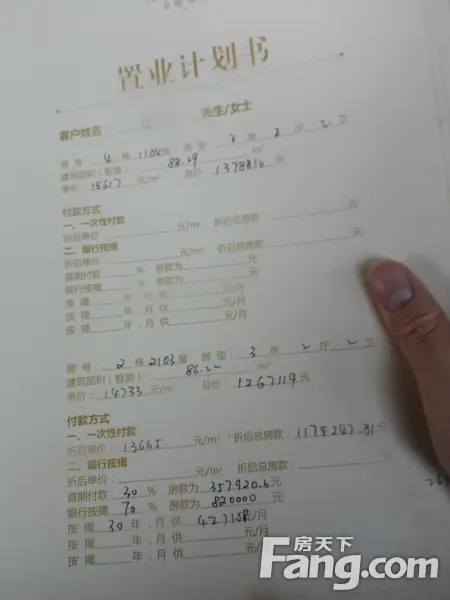 置业计划书
客户姓名 先生/女士
房号 4 栋 1104室 房型 3 房 2 厅 2 卫
建筑面积(暂测) 88.29 m²
单价 15617 元/m² 总价 1378810 元
付款方式
一、一次性付款
折后单价 元/m² 折后总房款 元
二、银行按揭
折后单价 元/m² 折后总房款 元
首期付款 % 房款为 元
银行按揭 % 房款为 元
按揭 年,月供 元/月
按揭 年,月供 元/月
按揭 年,月供 元/月
房号:2 栋 2103室 房型:3 房 2 厅 2 卫
建筑面积(暂测): 86.22 m²
单价:14733 元/m² 总价:1267119 元
付款方式
一、一次性付款
折后单价:13665 元/m² 折后总房款:1178247.81元
二、银行按揭
折后单价: 元/m² 折后总房款: 元
首期付款 30 % 房款为 357920.6元
银行按揭 70 % 房款为 820000 元
按揭 30 年,月供 元/月
按揭 年,月供 元/月
按揭 年,月供 元/月
房天下
Fang.com